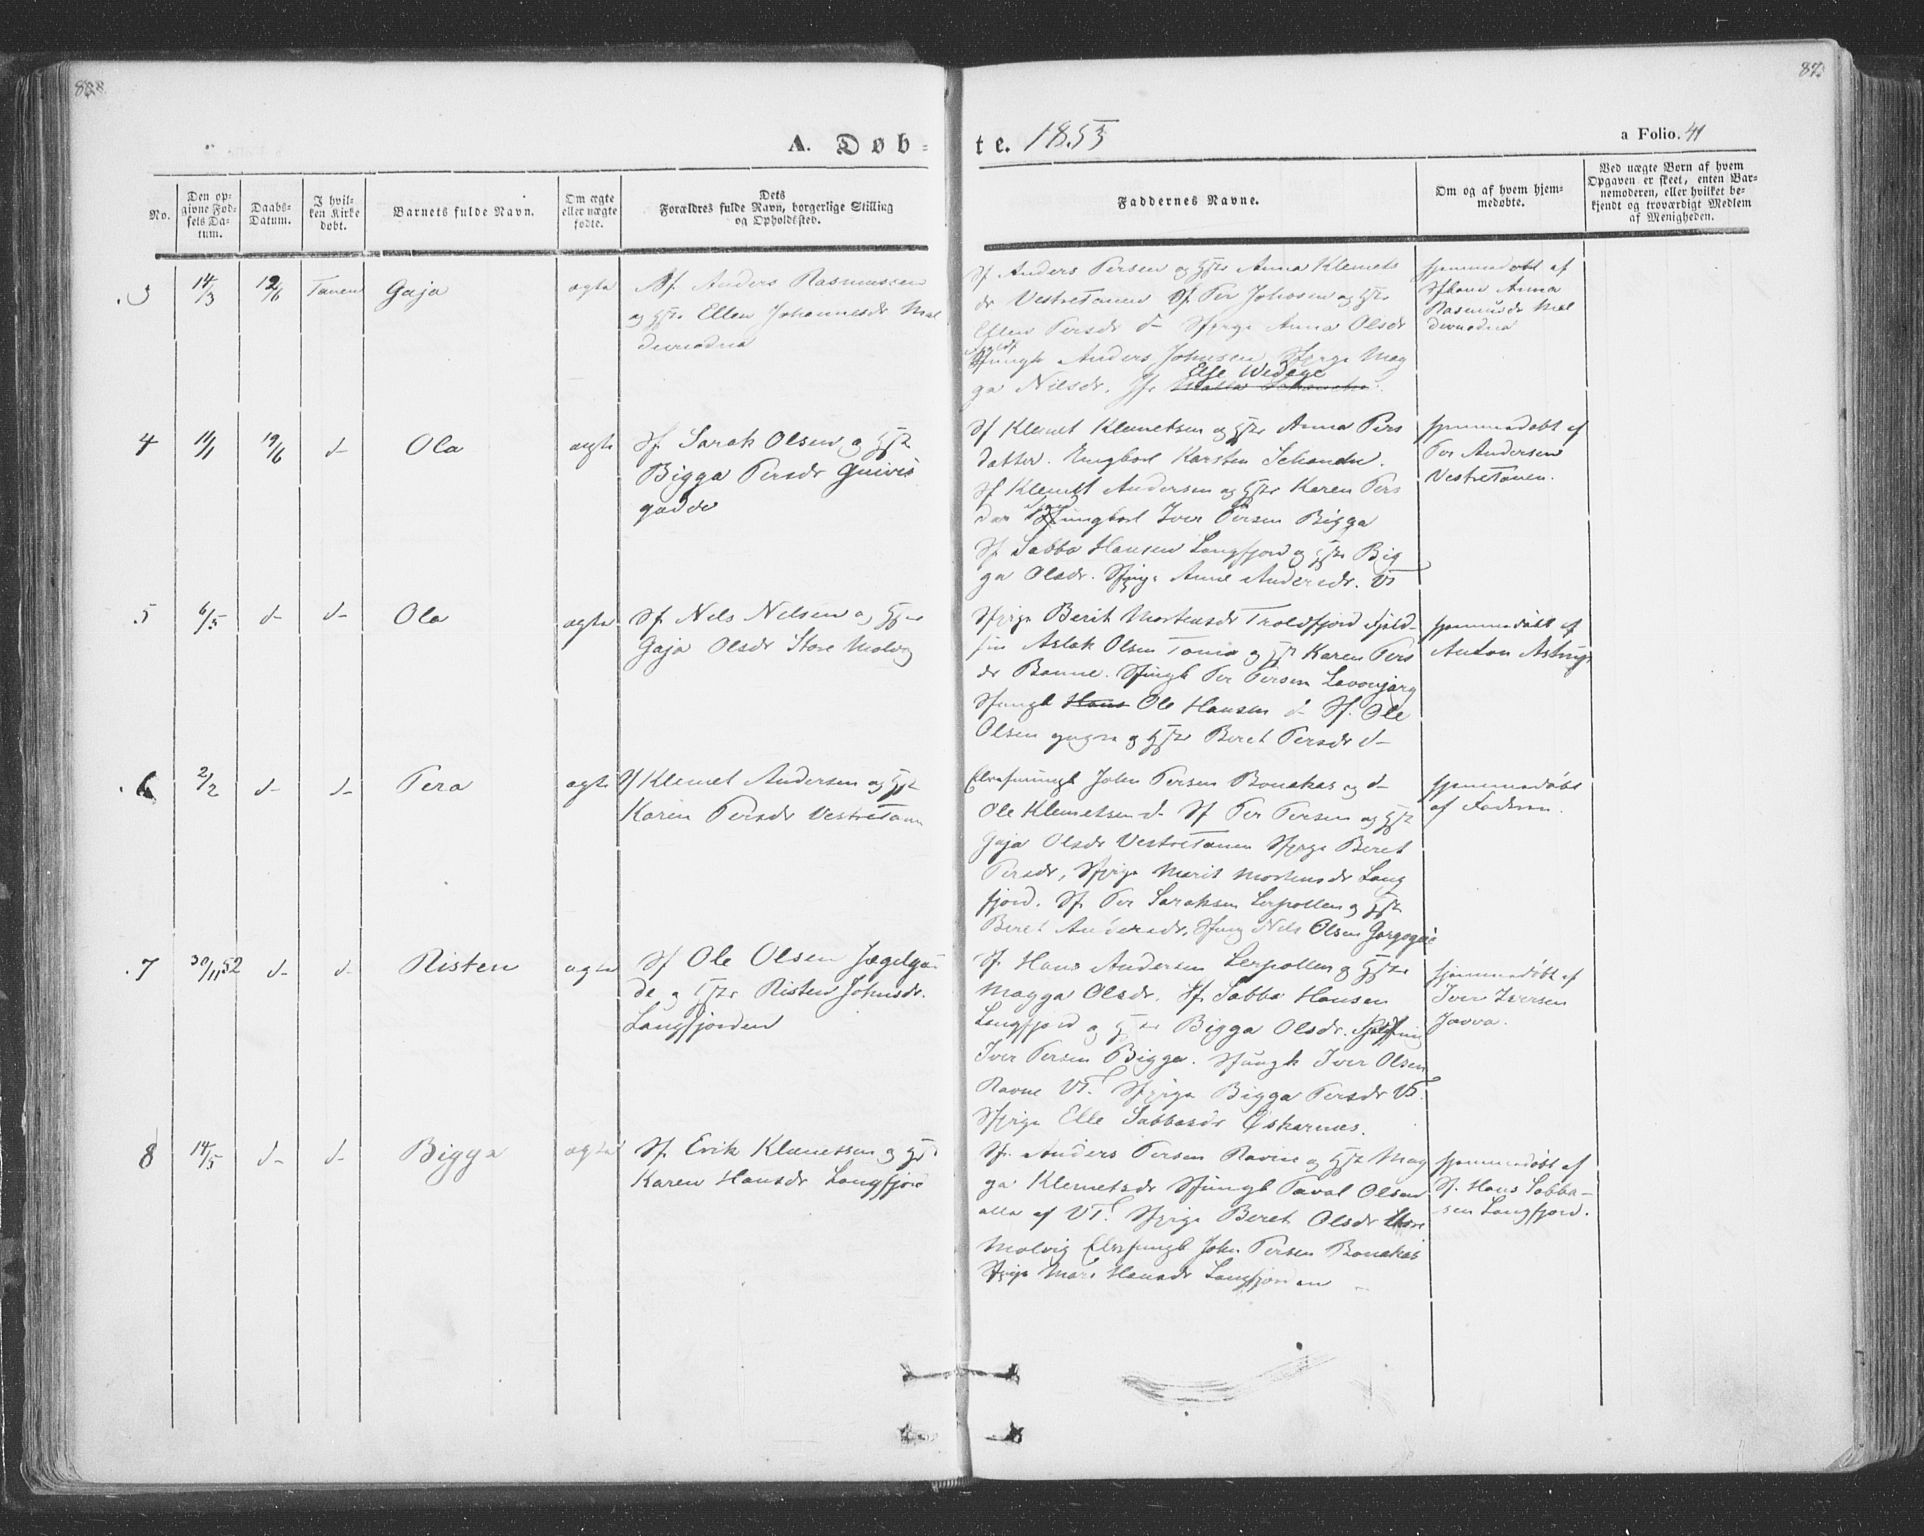 A. Døb-
te. 1853
a Folio. 41
No.
Den op-
givne Fød-
sels Da-
tum.
Daabs-
Datum.
I hvil-
ken Kirke
døbt.
Barnets fulde Navn.
Om ægte
eller uægte
fødte.
Dets
Forældres fulde Navn, borgerlige Stilling
og Opholdssted.
Faddernes Navne.
Om og af hvem hjem-
medøbte.
Ved uægte Børn af hvem
Opgaven er skeet, enten Bar-
nemoderen, eller hvilket be-
kjendt og troværdigt Medlem
af Menigheden.
3 14/3 12/6 Tanen Gaja ægte Sf. Anders Rasmussen
og Hstr Ellen Johannesdr
Sf Anders Persen og Hstr Anna Klemets
dr Vestretanen Sf. Per Johnsen og Hstr
Ellen Persdr d- Sfpige Anna Olsdr
Anders Johnsen Sfpige Mag
ga Nilsdr. Elle Wedege
hjemmedøbt af
Anna
Rasmusdr
4 11/1 19/6 d- Ola ægte Sf Sarak Olsen og Hstr
Bigga Persdr Guivis
gadde
Sf Klemet Klemetsen og Hstr Anna Pers
datter. Ungkarl Karsten Schanche.
Sf Klemet Andersen og Hstr Karen Pers
dar Sfungkarl Iver Persen Bigga
Sf Sabba Hansen Langfjord og Hstr Big
ga Olsdr. Sfpige Anne Andersdr. VT
hjemmedøbt af
Per Andersen
Vestretanen.
5 6/5 d- d- Ola ægte Sf. Nels Nelsen og Hstr
Gaja Olsdr Store Molvig
Sfpige Berit Mortensdr Troldfjord Fjeld-
fin Aslak Olsen Tonia og Hstr Karen Pers
dr Banne. Sfungk Per Persen Lavonjarg
Sfungk Hans Ole Hansen d- Sf. Ole
Olsen yngre og Hstr Beret Persdr d-
hjemmedøbt af
Anton
6 2/2 d- d- Pera ægte Sf Klemet Andersen og Hstr
Karen Persdr Vestretanen
Elvefinungk John Persen Bonakas og d-
Ole Klemetsen d- Sf Per Persen og Hstr
Gaja Olsdr Vestretanen Sfpige Beret
Persdr, Sfpige Marit Mortensdr Lang
fjord. Sf. Per Saraksen Lerpollen og Hstr
Beret Andersdr, Sfung Nils Olsen
hjemmedøbt
af Faderen.
7 30/11 52 d- d- Risten ægte Sf Ole Olsen Jægelga
de og Hstr Risten Johnsdr.
Langfjorden
Sf. Hans Andersen Lerpollen og Hstr
Magga Olsdr. Sf. Sabba Hansen
Langfjord og Hstr Bigga Olsdr.
Iver Persen Bigga. Sfungk Iver Olsen
Ravne VT. Sfpige Bigga Persdr VT.
Sfpige Elle Sabbasdr Øskarnes.
hjemmedøbt af
Iver Iversen
Javva.
8 14/5 d- d- Bigga ægte Sf. Erik Klemetsen og Hstr
Karen Hansdr Langfjord
Sf. Anders Persen Ravne og Hstr Mag
ga Klemetsdr Sfungk Paval Olsen
alle af VT. Sfpige Beret Olsdr Store
Molvig Elvefungk John Persen Bonakas
Sfpige Mari Hansdr Langfjorden
hjemmedøbt af
Sf. Hans Sabba-
sen Langfjord.